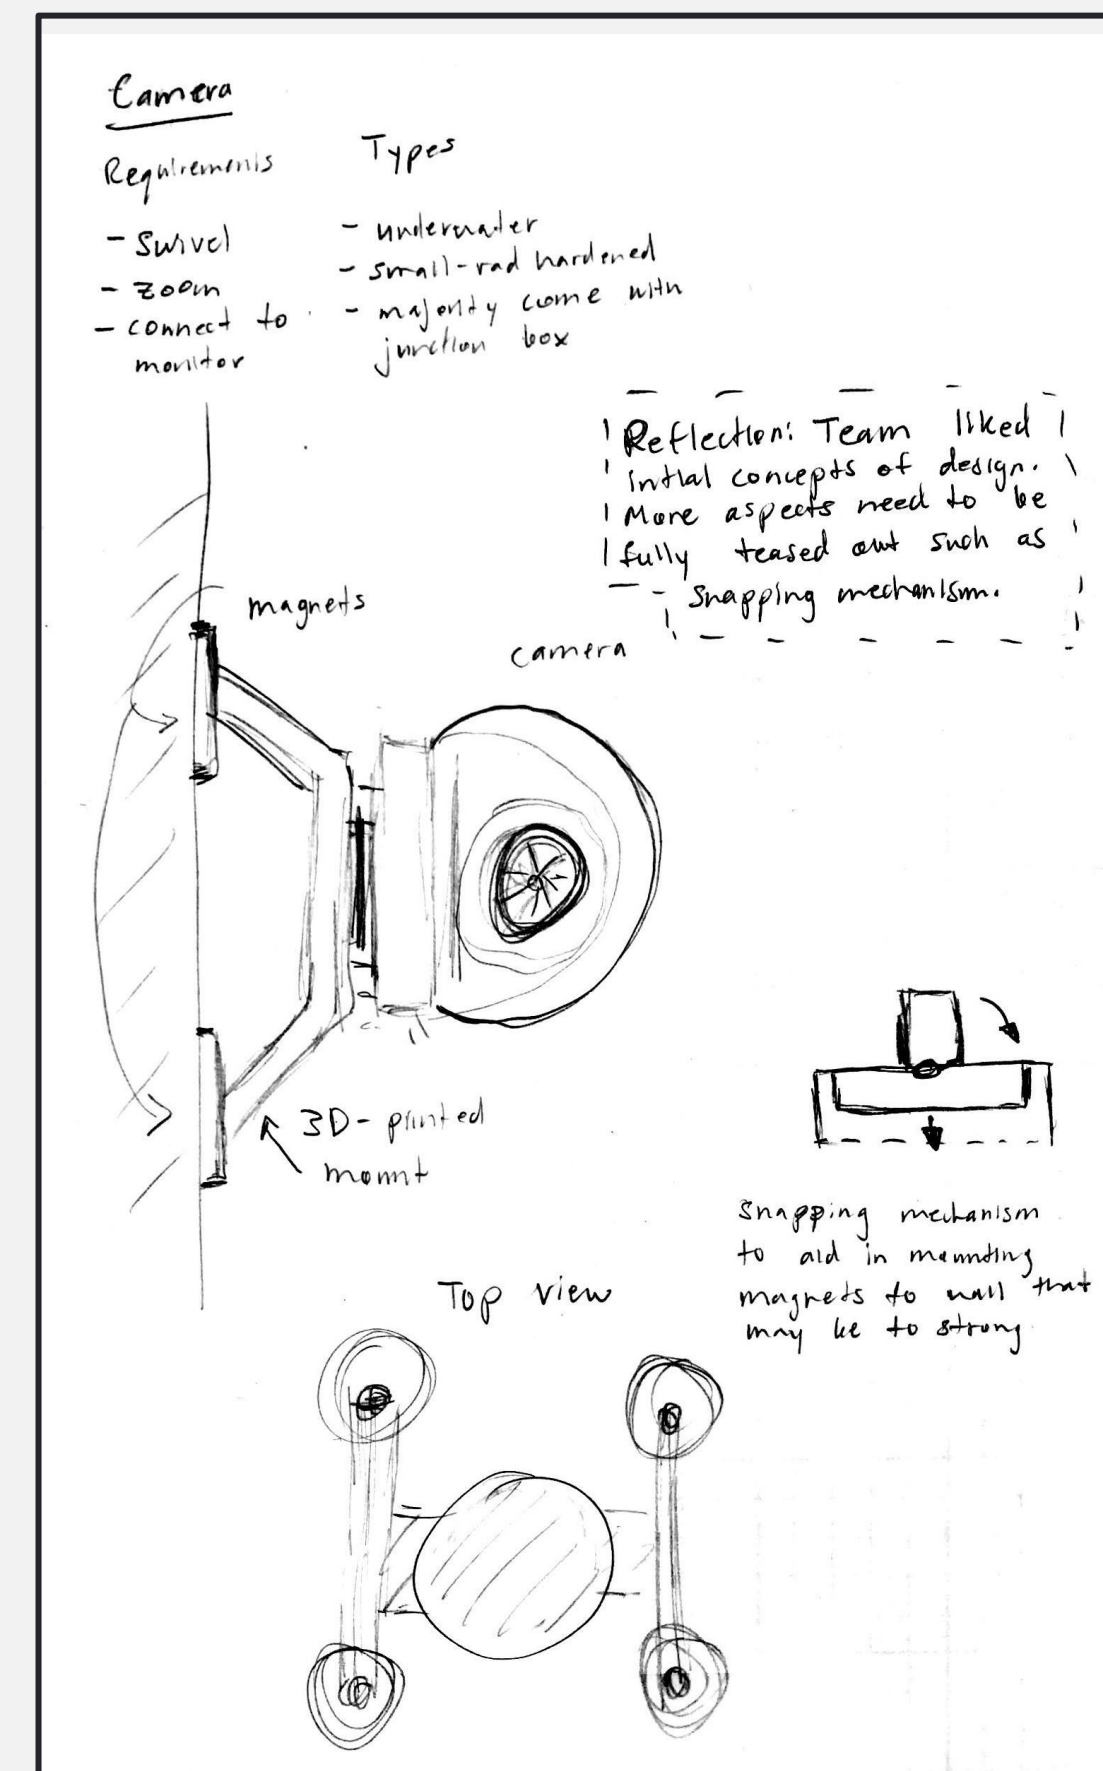 Camera
Requirements
- Swivel
- Zoom
- connect to
monitor
Types
- underwater
- small-rad hardened
- majority come with
junction box
Reflection: Team liked
initial concepts of design.
More aspects need to be
fully teased out such as
- snapping mechanism.
magnets
camera
3D-printed
mount
Snapping mechanism
to aid in mounting
magnets to wall that
may be to strong
Top view